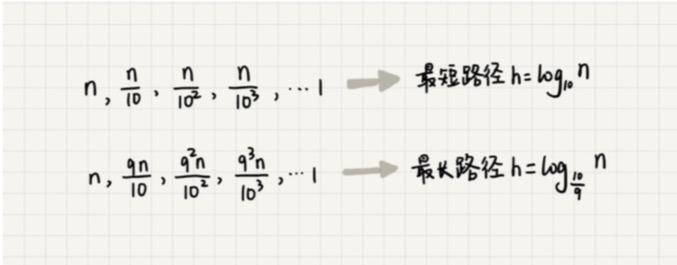 n, n/10, n/10², n/10³, ⋯ 1 → 最短路径 h = log₁₀ n
n, 9n/10, 9²n/10², 9³n/10³, ⋯ 1 → 最长路径 h = log_{10/9} n